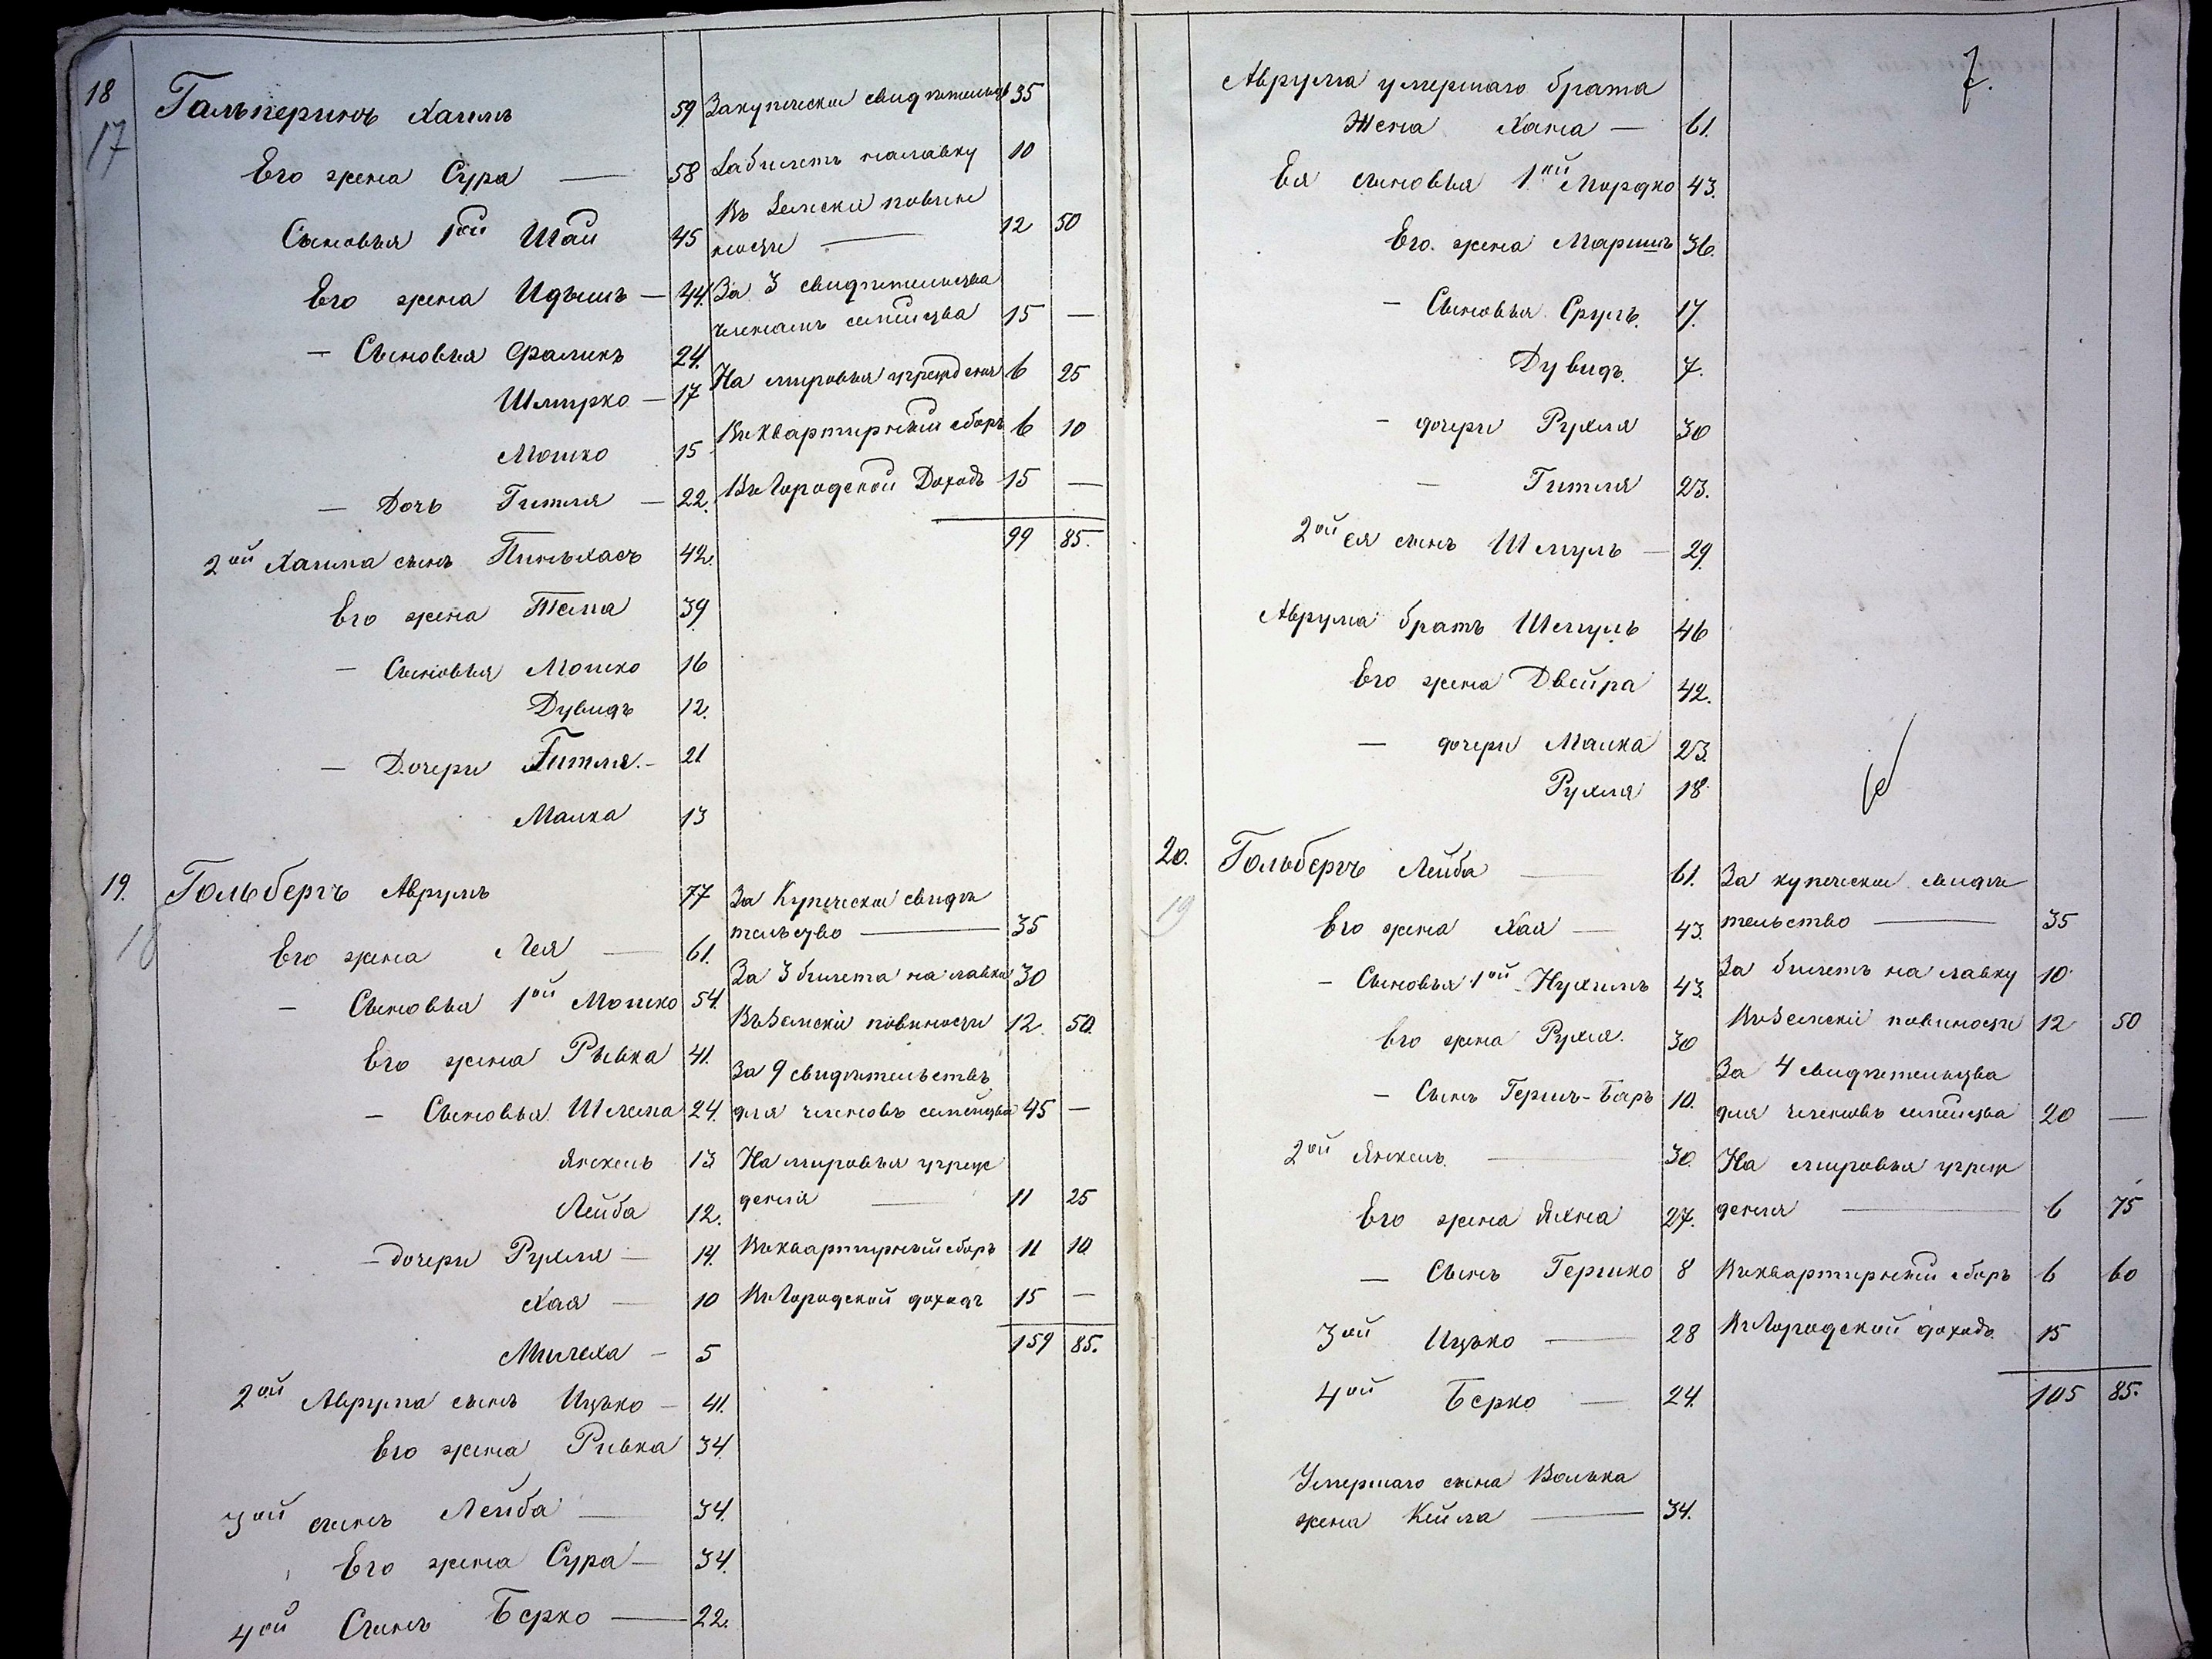 18 Гальперинъ Хаимъ 59 Закупеческое свидѣтельство 35
17
Его жена Сура — 58 За билетъ на лавку 10
Въ Земскіе повин
Сыновья 1ой Шая 45 ности — 12 50
Его жена Идысъ — 44. За 3 свидѣтельства
членамъ семейства 15 —
— Сыновья Фраликъ 24.
На мировыя учрежденія 6 25
Шмирко — 17
Въ Квартирный сборъ 6 10
Мошко 15
Въ Городской Доходъ 15 —
— Дочь Гитля — 22.
99 85.
2ой Хаима сынъ Пиньхасъ 42.
Его жена Тема 39
— Сыновья Мошко 16
Дувидъ 12.
— Дочери Гитля. — 21
Малка 13
19. Гольбергъ Аврумъ 77 За Купеческое свидѣ
тельство — 35
Его жена Лея — 61.
За 3 билета на лавки 30
— Сыновья 1ой Мошко 54.
Въ Земскіе повиности 12. 50.
Его жена Рывка 41.
За 9 свидѣтельствъ
— Сыновья Шлема 24. для членовъ семейства 45 —
Янкель 13 На мировыя учреж
Лейба 12. денія — 11 25
— дочери Рухля — 14. Въ квартирный сборъ 11 10
Хая — 10 Въ Городской доходъ 15 —
159 85.
Милеха — 5
2ой Аврума сынъ Ицько — 41.
Его жена Ривка 34.
3ой сынъ Лейба — 34.
Его жена Сура — 34.
4ой Сынъ Берко — 22.
7.
Аврума умершаго брата
Жена Хана — 61.
Ея сыновья 1ой Мордко 43.
Его жена Маришъ 36.
— Сыновья Сруль. 17.
Дувидъ. 7.
— дочери Рухля 30
— Гитля 23.
2ой ея сынъ Шмуль — 29.
Аврума братъ Шмуль 46
Его жена Двейра 42.
— дочери Малка 23.
Рухля 18.
20. Гольбергъ Лейба — 61. За купеческое свидѣ
тельство — 35
19 Его жена Хая — 43.
За билетъ на лавку 10
— Сыновья 1ой Нухимъ 43.
Въ Земскіе повиности 12 50
Его жена Рухля. 30
За 4 свидѣтельства
— Сынъ Гершъ-Беръ 10. для членовъ семейства 20 —
2ой Янкель. — 30. На мировыя учреж
Его жена Яхна 27. денія — 6 75
— Сынъ Гершко 8 Въ квартирный сборъ 6 60
3ой Ицько — 28 Въ Городской доходъ 15
105 85.
4ой Берко — 24.
Умершаго сына Волька
жена Кейла — 34.